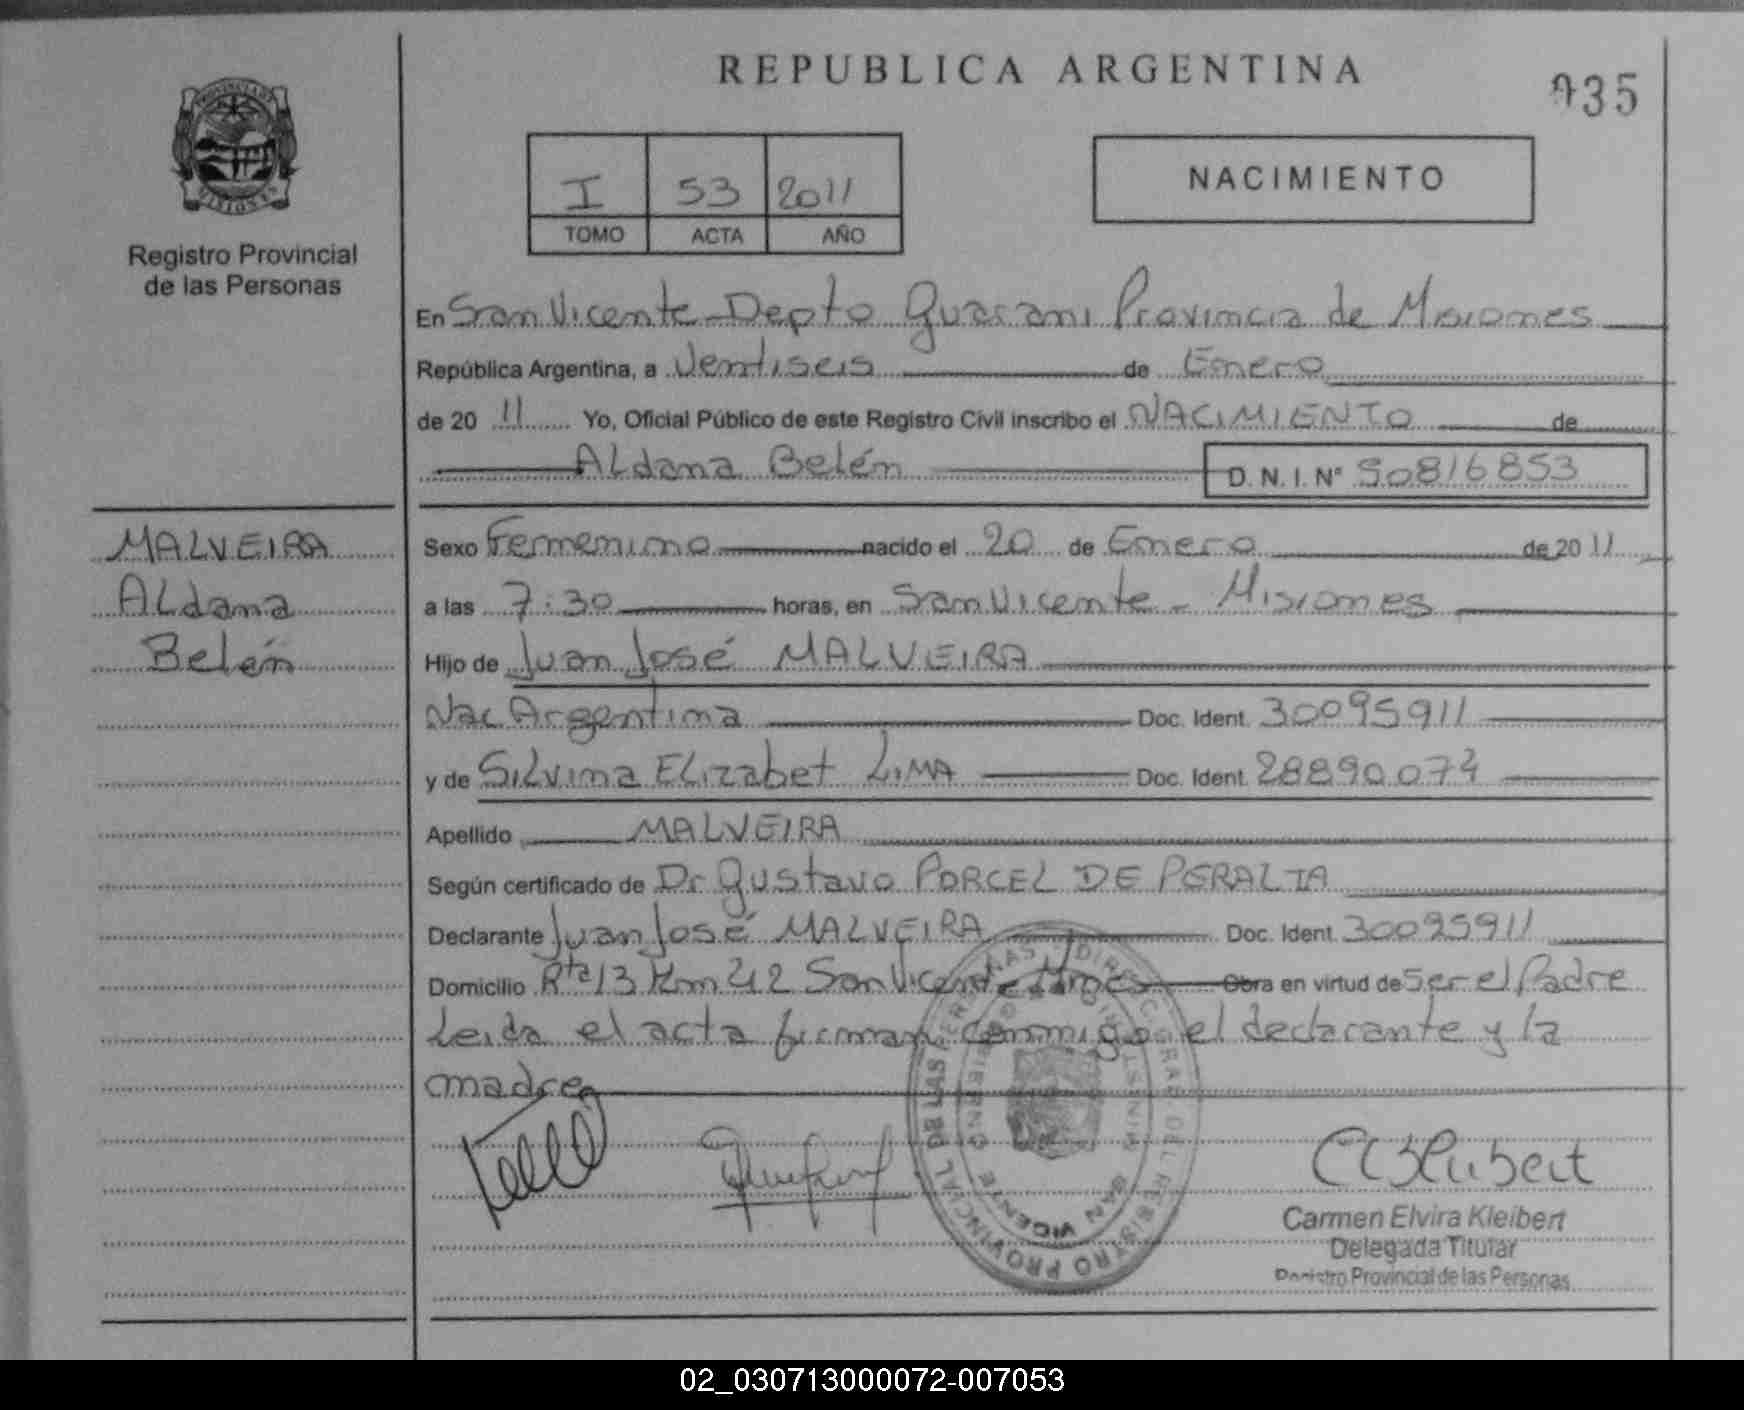 REPUBLICA ARGENTINA
035
PROVINCIA DE
MISIONES
Registro Provincial
de las Personas
I 53 2011
TOMO ACTA AÑO
NACIMIENTO
En San Vicente Depto Guarani Provincia de Misiones
República Argentina, a Ventiseis de Enero
de 20 11 Yo, Oficial Público de este Registro Civil inscribo el NACIMIENTO de
Aldana Belén D. N. I. N° 50816853
MALVEIRA
Aldana
Belén
Sexo Femenino nacido el 20 de Enero de 20 11
a las 7:30 horas, en San Vicente - Misiones
Hijo de Juan José MALVEIRA
Nac Argentina Doc. Ident. 30095911
y de Silvina Elizabet LIMA Doc. Ident. 28890074
Apellido MALVEIRA
Según certificado de Dr Gustavo PORCEL DE PERALTA
Declarante Juan José MALVEIRA Doc. Ident. 30095911
Domicilio Rta 13 Km 242 San Vicente Mnes Obra en virtud de ser el Padre
Leida el acta firman conmigo el declarante y la
madre
DIRECC. GRAL. DEL REGISTRO PROVINCIAL DE LAS PERSONAS
SAN VICENTE
Carmen Elvira Kleibert
Delegada Titular
Registro Provincial de las Personas
02_030713000072-007053